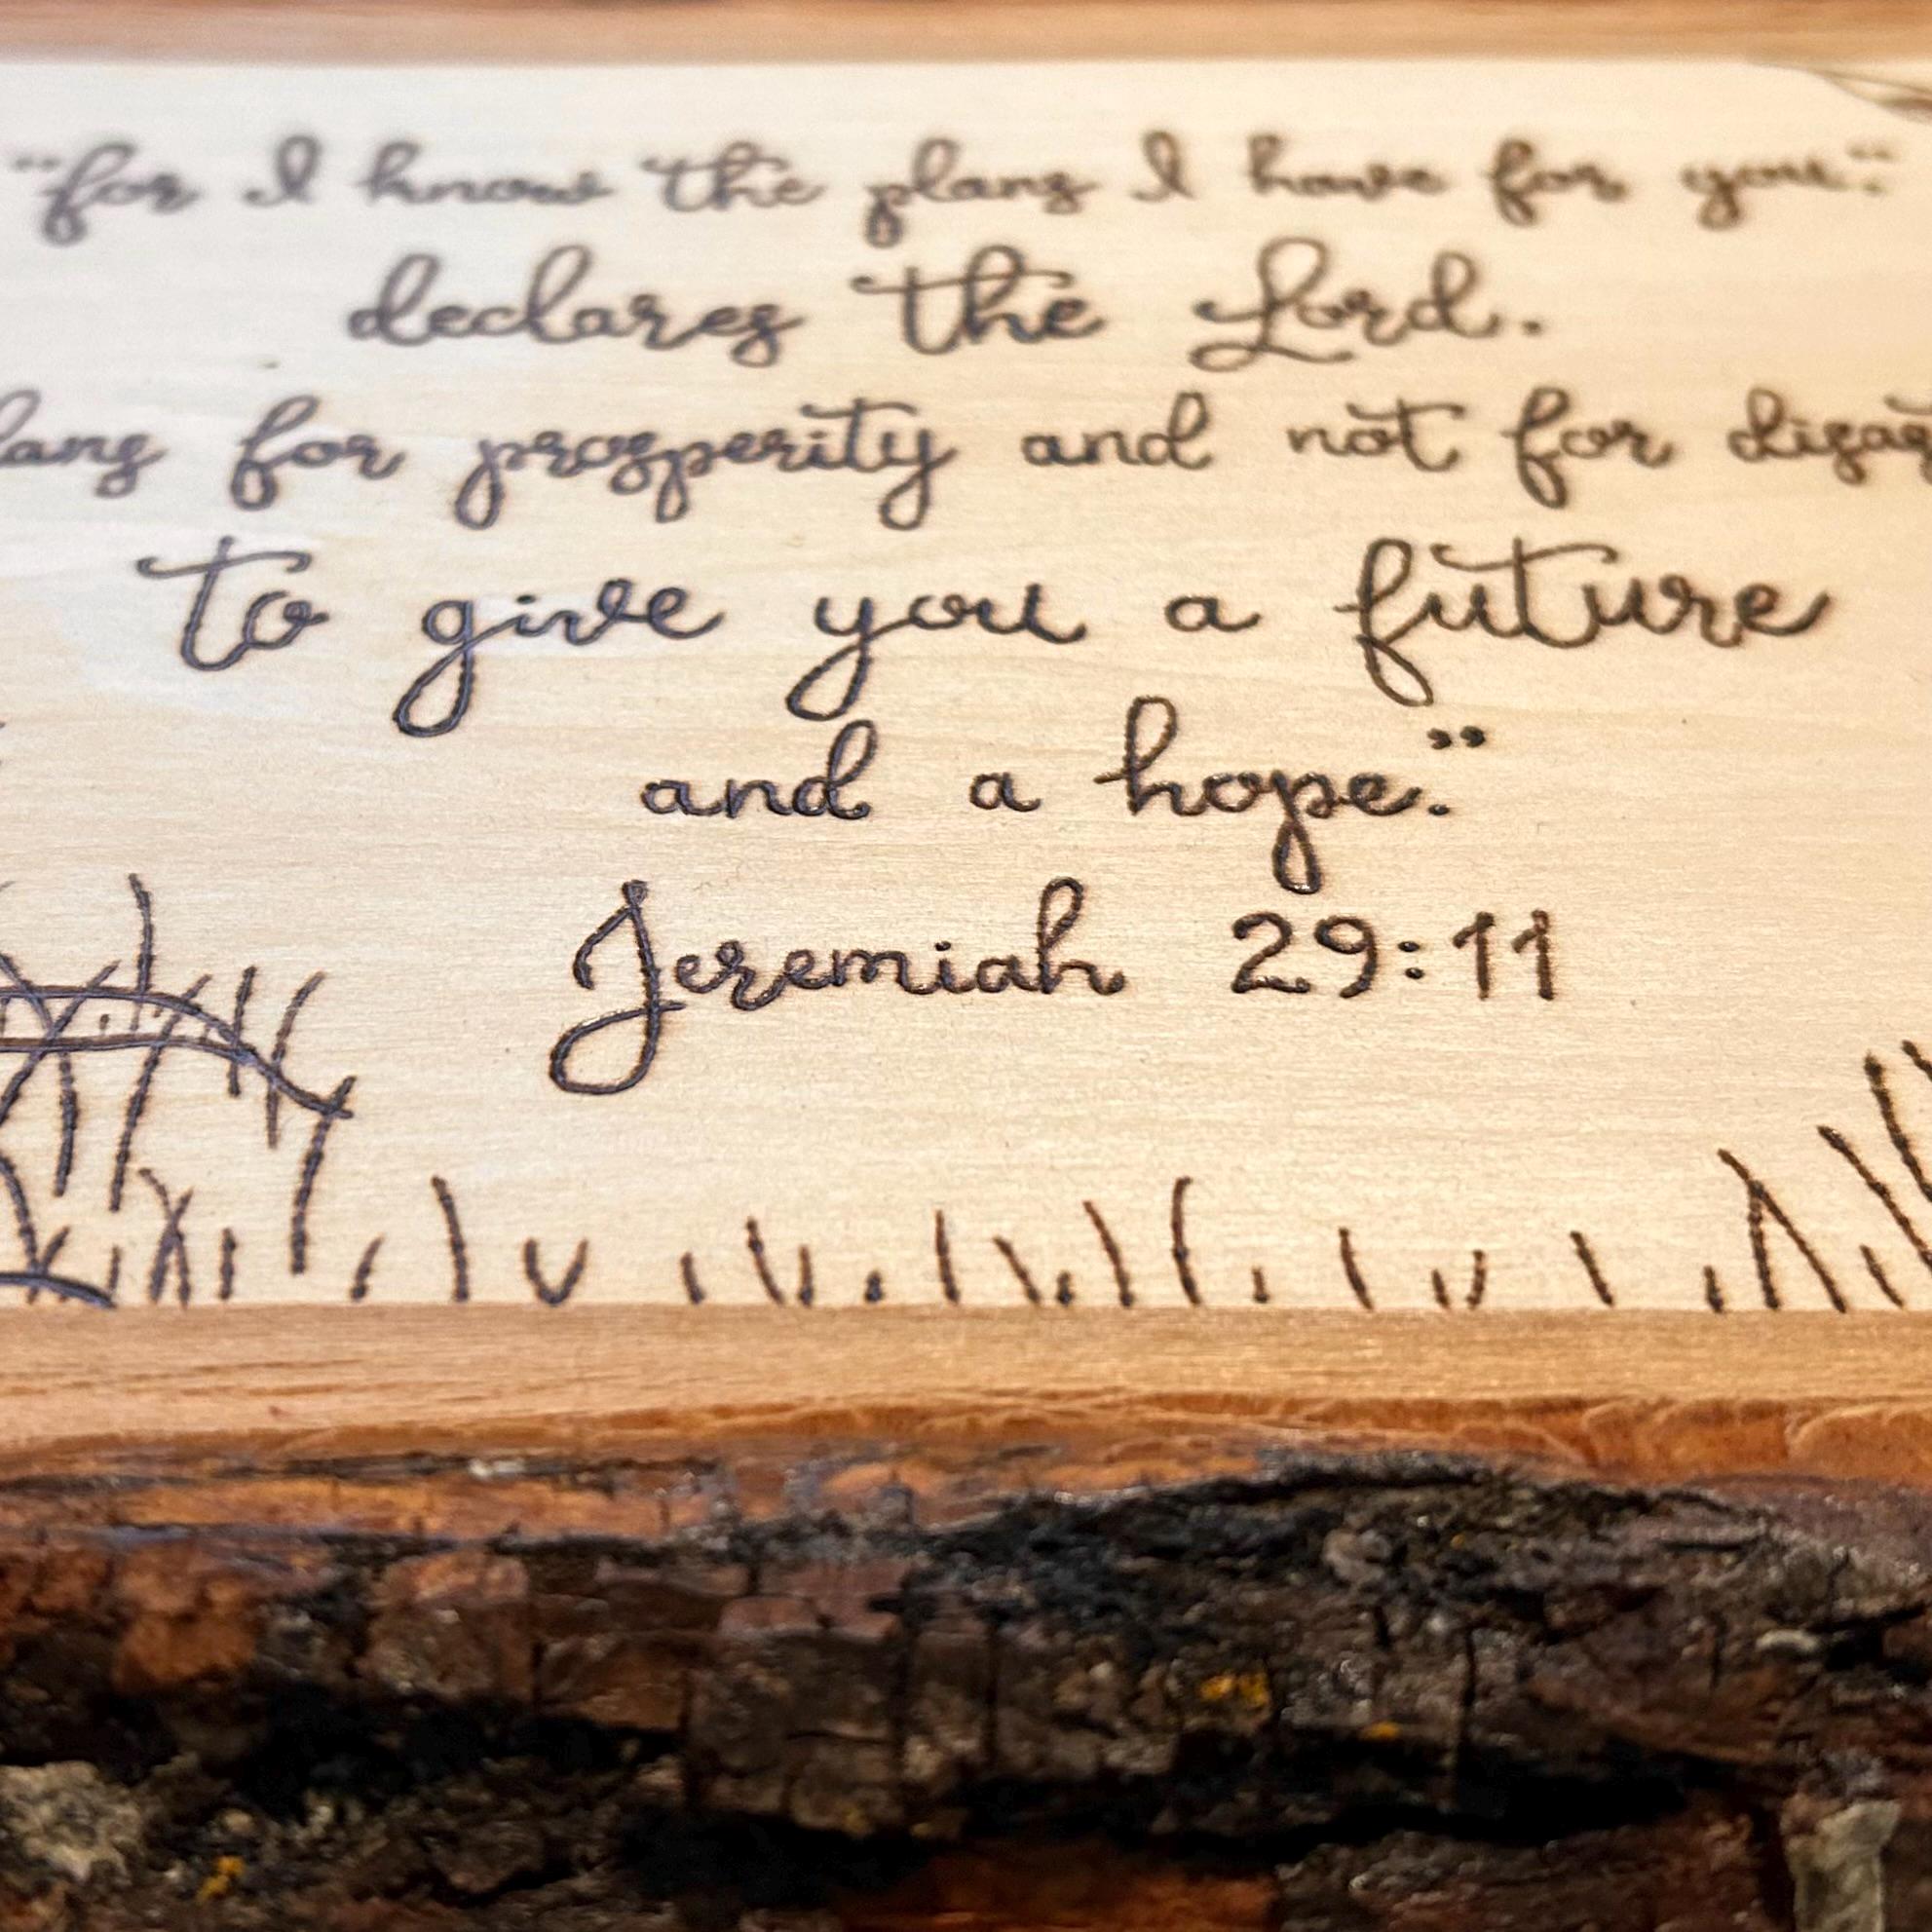 "for I know the plans I have for you."
declares the Lord.
lans for prosperity and not for disas
to give you a future
and a hope."
Jeremiah 29:11